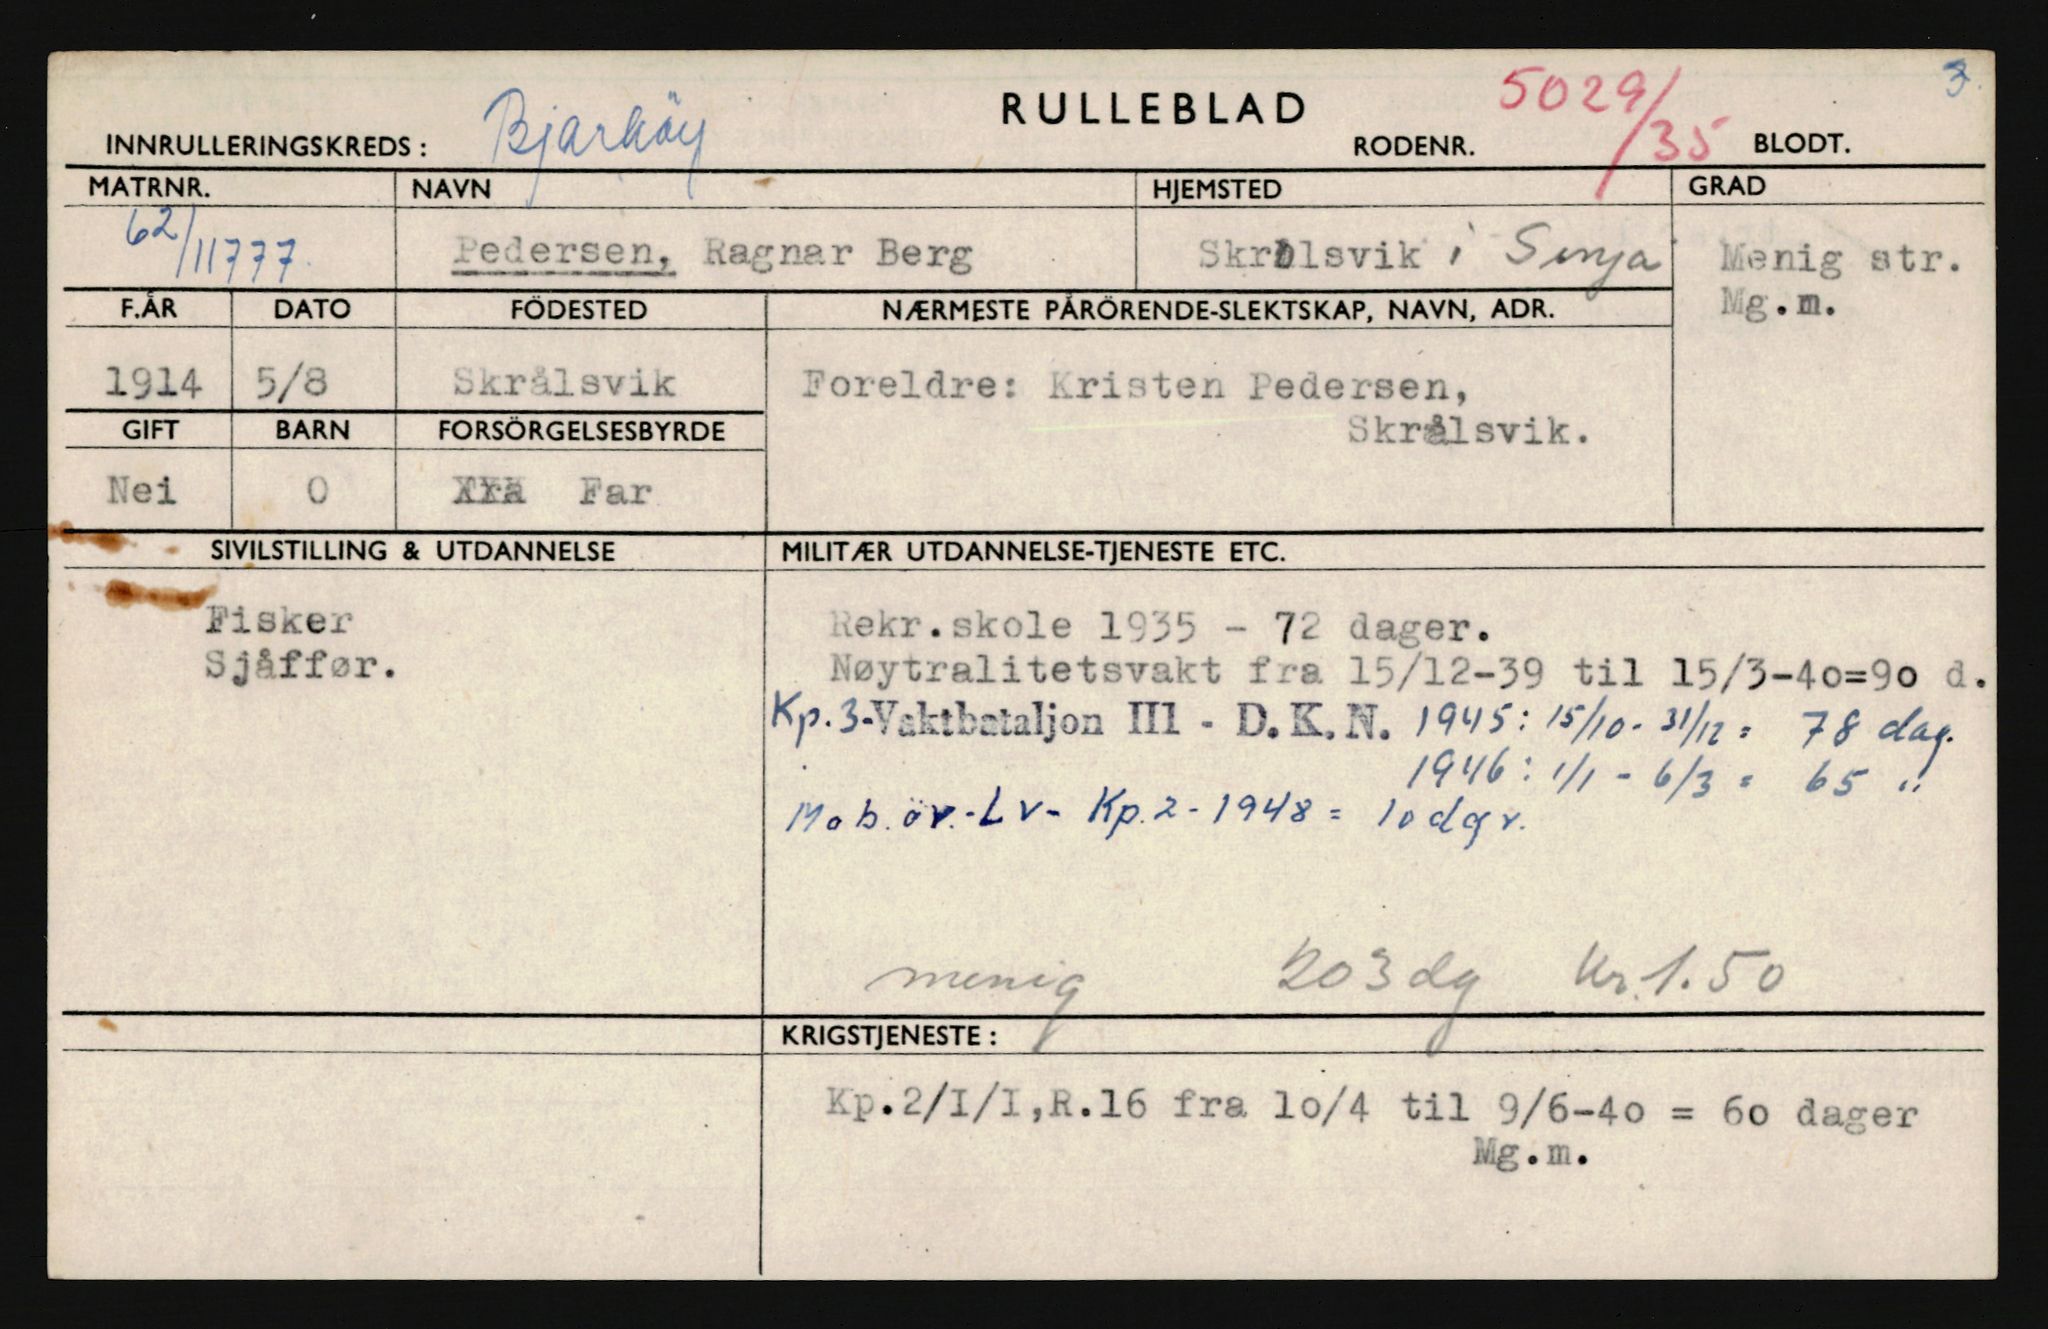 RULLEBLAD
5029/35
3.
INNRULLERINGSKREDS: Bjarköy
RODENR.
BLODT.
MATRNR. NAVN HJEMSTED GRAD
62/11777. Pedersen, Ragnar Berg Skrålsvik i Senja Menig str.
Mg.m.
F.ÅR DATO FÖDESTED NÆRMESTE PÅRÖRENDE-SLEKTSKAP, NAVN, ADR.
1914 5/8 Skrålsvik Foreldre: Kristen Pedersen,
Skrålsvik.
GIFT BARN FORSÖRGELSESBYRDE
Nei 0 Far
SIVILSTILLING & UTDANNELSE MILITÆR UTDANNELSE-TJENESTE ETC.
Fisker
Sjåffør.
Rekr.skole 1935 - 72 dager.
Nøytralitetsvakt fra 15/12-39 til 15/3-40=90 d.
Kp.3-Vaktbataljon III - D.K.N. 1945: 15/10 - 31/12 = 78 dag.
1946: 1/1 - 6/3 = 65 "
Mob.öv.-Lv- Kp.2-1948 = 10dgr.
menig 203 dg Kr.1.50
KRIGSTJENESTE:
Kp.2/I/I,R.16 fra 10/4 til 9/6-40 = 60 dager
Mg.m.